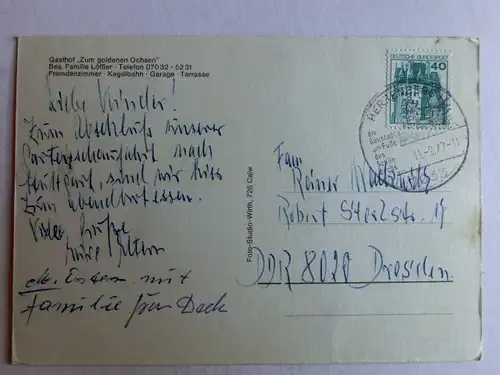 Gasthof „Zum goldenen Ochsen"
Bes. Familie Löffler · Telefon 07032 - 5231
Fremdenzimmer · Kegelbahn · Garage · Terrasse
Liebe Kinder!
Zum Abschluß unserer
Gartenschaufahrt nach
Stuttgart, sind wir hier
zum Abendbrotessen.
Viele Grüße
Eure Eltern
mit
Familie Deck
Foto-Studio-Wirth, 726 Calw
DEUTSCHE BUNDESPOST
40
HERRENBERG
die
am Fuße
des
11.-8.77-11
Fam
Rainer
Robert
DDR 8020 Dresden